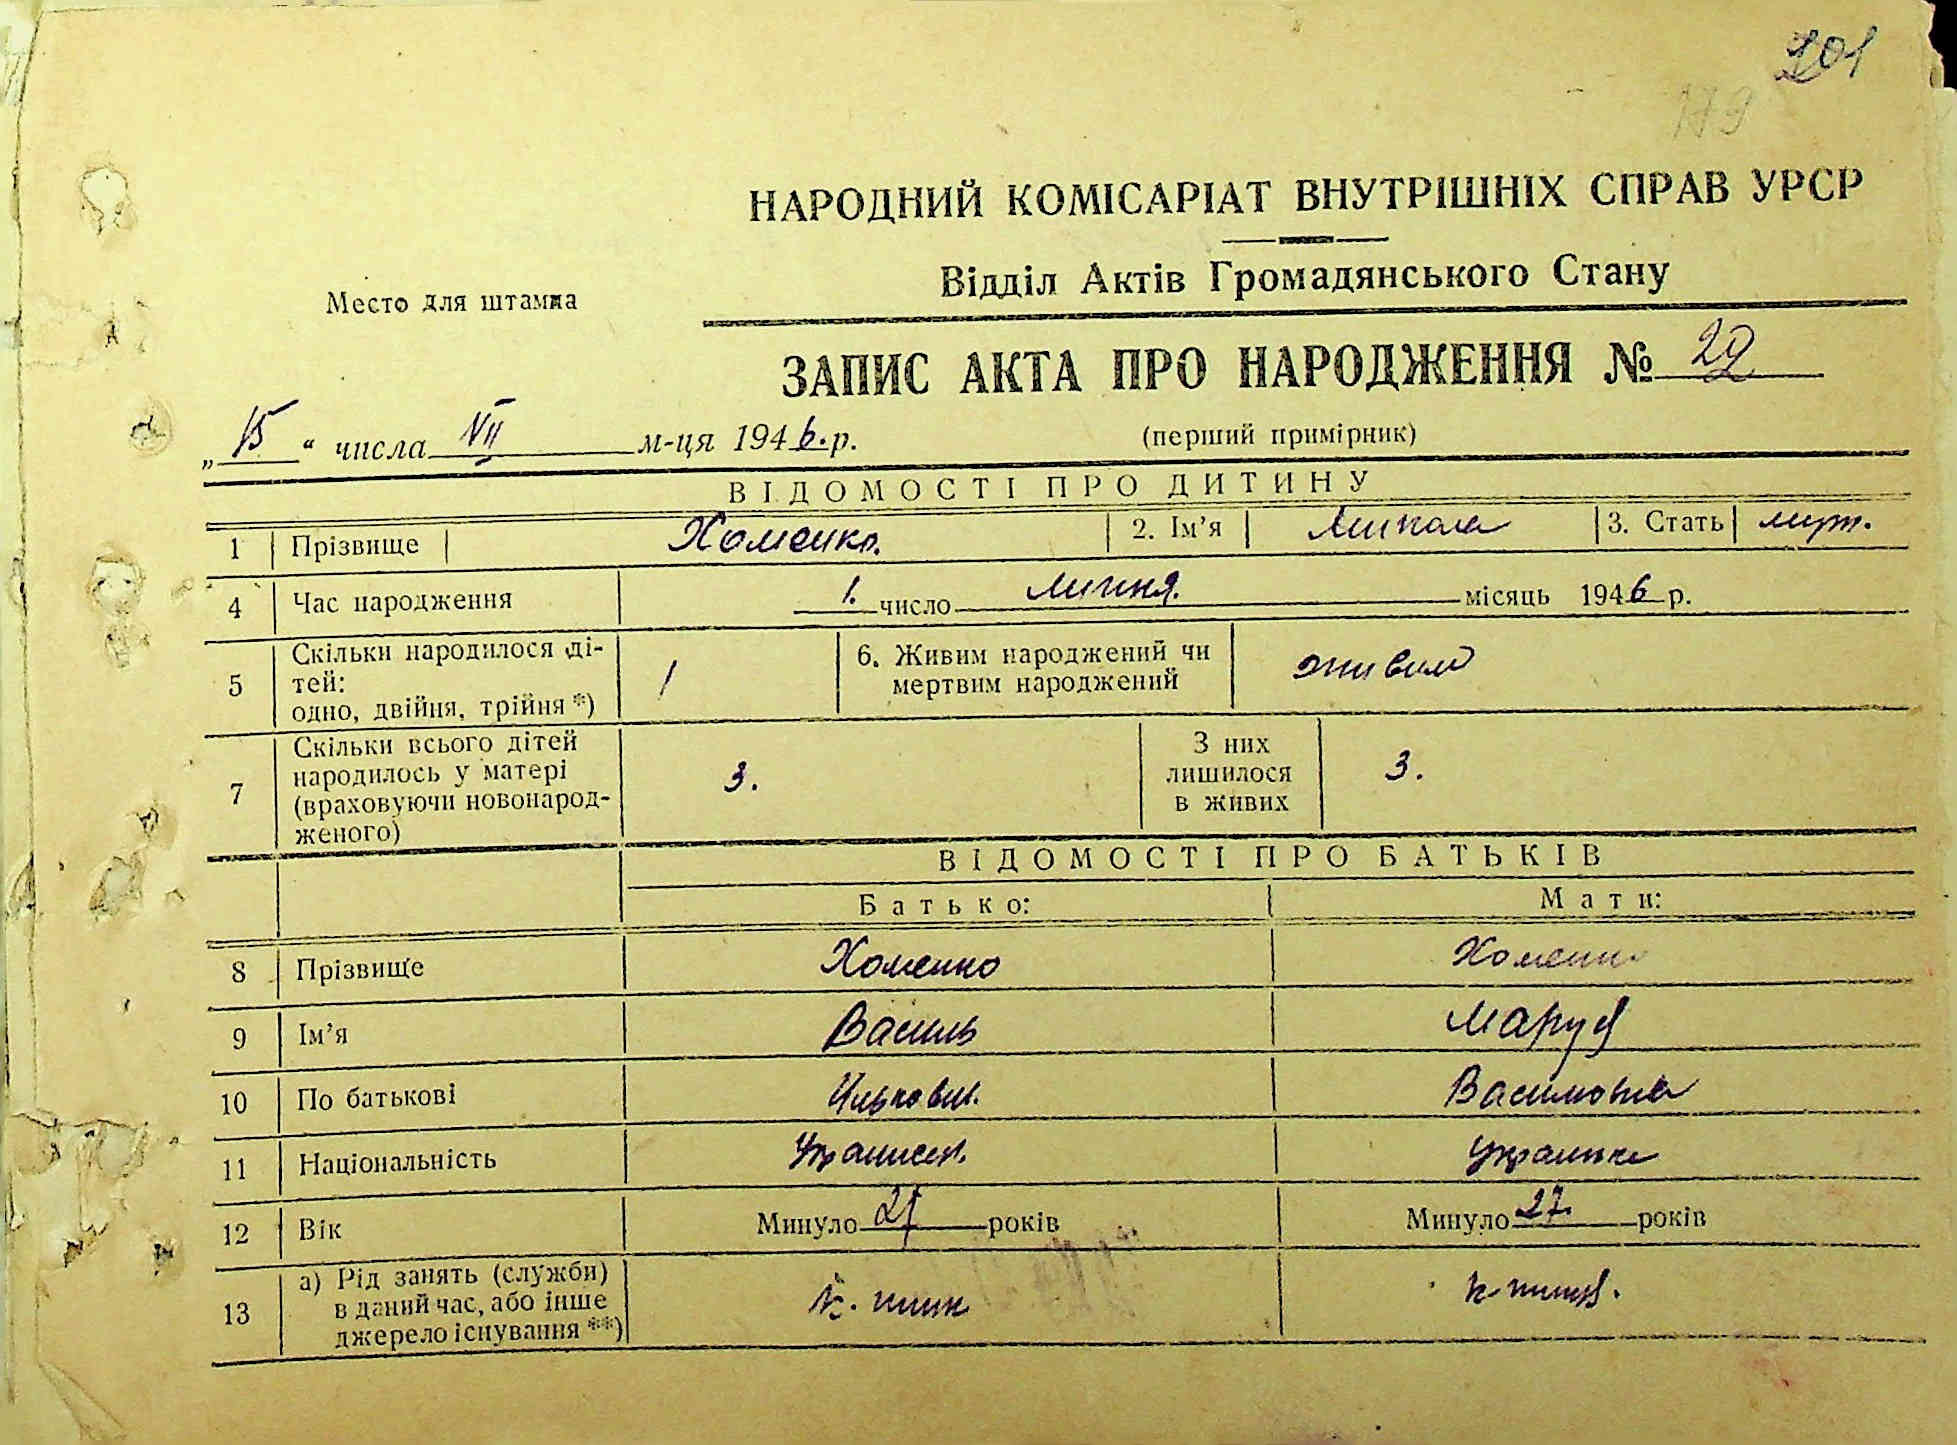 201
179
НАРОДНИЙ КОМІСАРІАТ ВНУТРІШНІХ СПРАВ УРСР
Відділ Актів Громадянського Стану
Место для штампа
ЗАПИС АКТА ПРО НАРОДЖЕННЯ № 29
„15“ числа VII м-ця 1946.р.
(перший примірник)
ВІДОМОСТІ ПРО ДИТИНУ
1 Прізвище Хоменко. 2. Ім’я Микола 3. Стать
4 Час народження 1. число липня. місяць 1946 р.
5 Скільки народилося ді-
тей:
одно, двійня, трійня *) 1
6. Живим народжений чи
мертвим народжений живим
7 Скільки всього дітей
народилось у матері
(враховуючи новонарод-
женого) 3.
З них
лишилося
в живих 3.
ВІДОМОСТІ ПРО БАТЬКІВ
Батько: Мати:
8 Прізвище Хоменко Хоменко
9 Ім’я Василь Маруся
10 По батькові Ількович. Василівна
11 Національність Українець. Українка
12 Вік Минуло років Минуло 27. років
13 а) Рід занять (служби)
в даний час, або інше
джерело існування **)